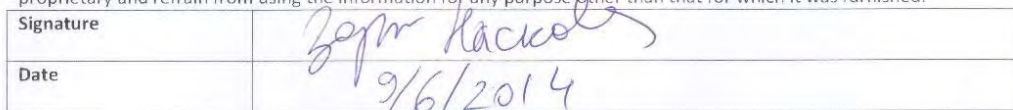 proprietary and refrain from using the information for any purpose other than that for which it was furnished.
Signature
Date 9/6/2014